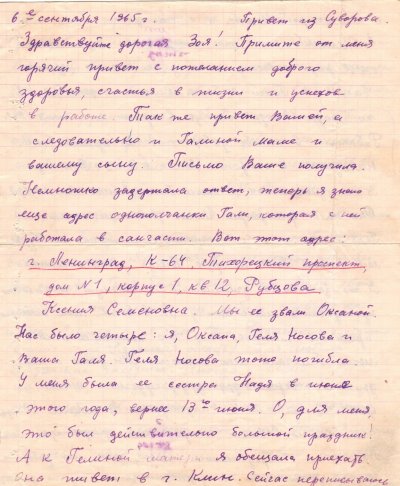 6е сентября 1965 г. Привет из Суворова.
Здравствуйте дорогая Зоя! Примите от меня
горячий привет с пожеланием доброго
здоровья, счастья в жизни и успехов
в работе. Так же привет Вашей, а
следовательно и Галиной маме и
вашему сыну. Письмо Ваше получила.
Немножко задержала ответ, теперь я знаю
еще адрес однополчанки Гали, которая с ней
работала в санчасти. Вот этот адрес:
г. Ленинград, К-64, Тихорецкий проспект,
дом N 1, корпус 1, кв 12, Рубцова
Ксения Семеновна. Мы ее звали Оксаной.
Нас было четыре: я, Оксана, Геля Носова и
Ваша Галя. Геля Носова тоже погибла.
У меня была ее сестра Надя в июне
этого года, вернее 13го июня. О, для меня
это был действительно большой праздник!
А к Гелиной я обещала приехать
она живет в г. Клин. Сейчас переписываюсь